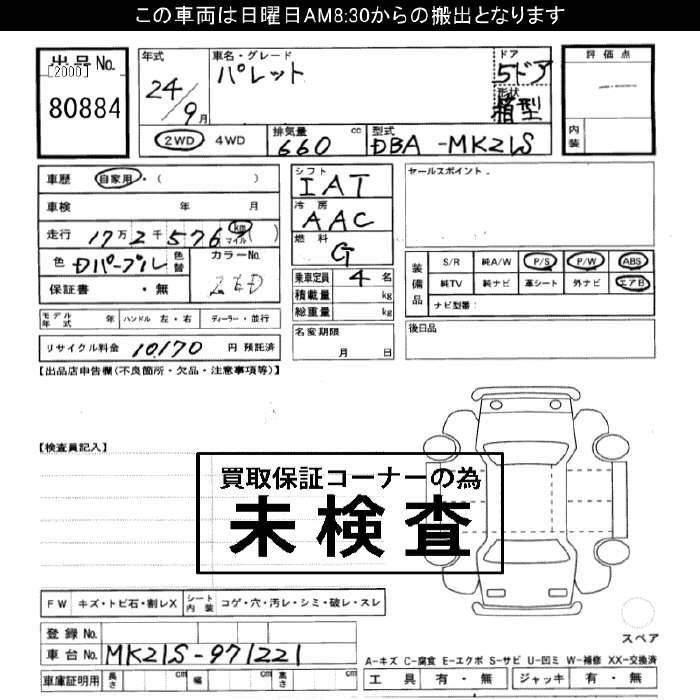 この車両は日曜日AM8:30からの搬出となります
出品No.
[2000]
80884
年式
24/9月
車名・グレード
パレット
ドア
5ドア
形状
箱型
評価点
—
内装
2WD 4WD
排気量 cc
660
型式
DBA-MK21S
車歴 自家用・( )
車検 年 月
走行 17万2千576? km マイル )
色 Dパープル 色替 カラーNo. ZED
保証書 ・無
シフト
IAT
冷房
AAC
燃料
G
セールスポイント.
装備品 S/R 純A/W P/S P/W ABS
純TV 純ナビ 革シート 外ナビ エアB
ナビ型番:
乗車定員 4 名
積載量 kg
総重量 kg
モデル年式 年 ハンドル 左・右 ディーラー・並行
リサイクル料金 10170 円 預託済
名変期限
月 日
後日品
【出品店申告欄(不良箇所・欠品・注意事項等)】
【検査員記入】
買取保証コーナーの為
未検査
FW キズ・トビ石・割レX シート内装 コゲ・穴・汚レ・シミ・破レ・スレ
登録No.
車台No. MK21S-971221
車庫証明用 長さ cm 幅 cm 高さ cm
スペア
A-キズ C-腐食 E-エクボ S-サビ U-凹ミ W-補修 XX-交換済
工具 有・無 ジャッキ 有・無